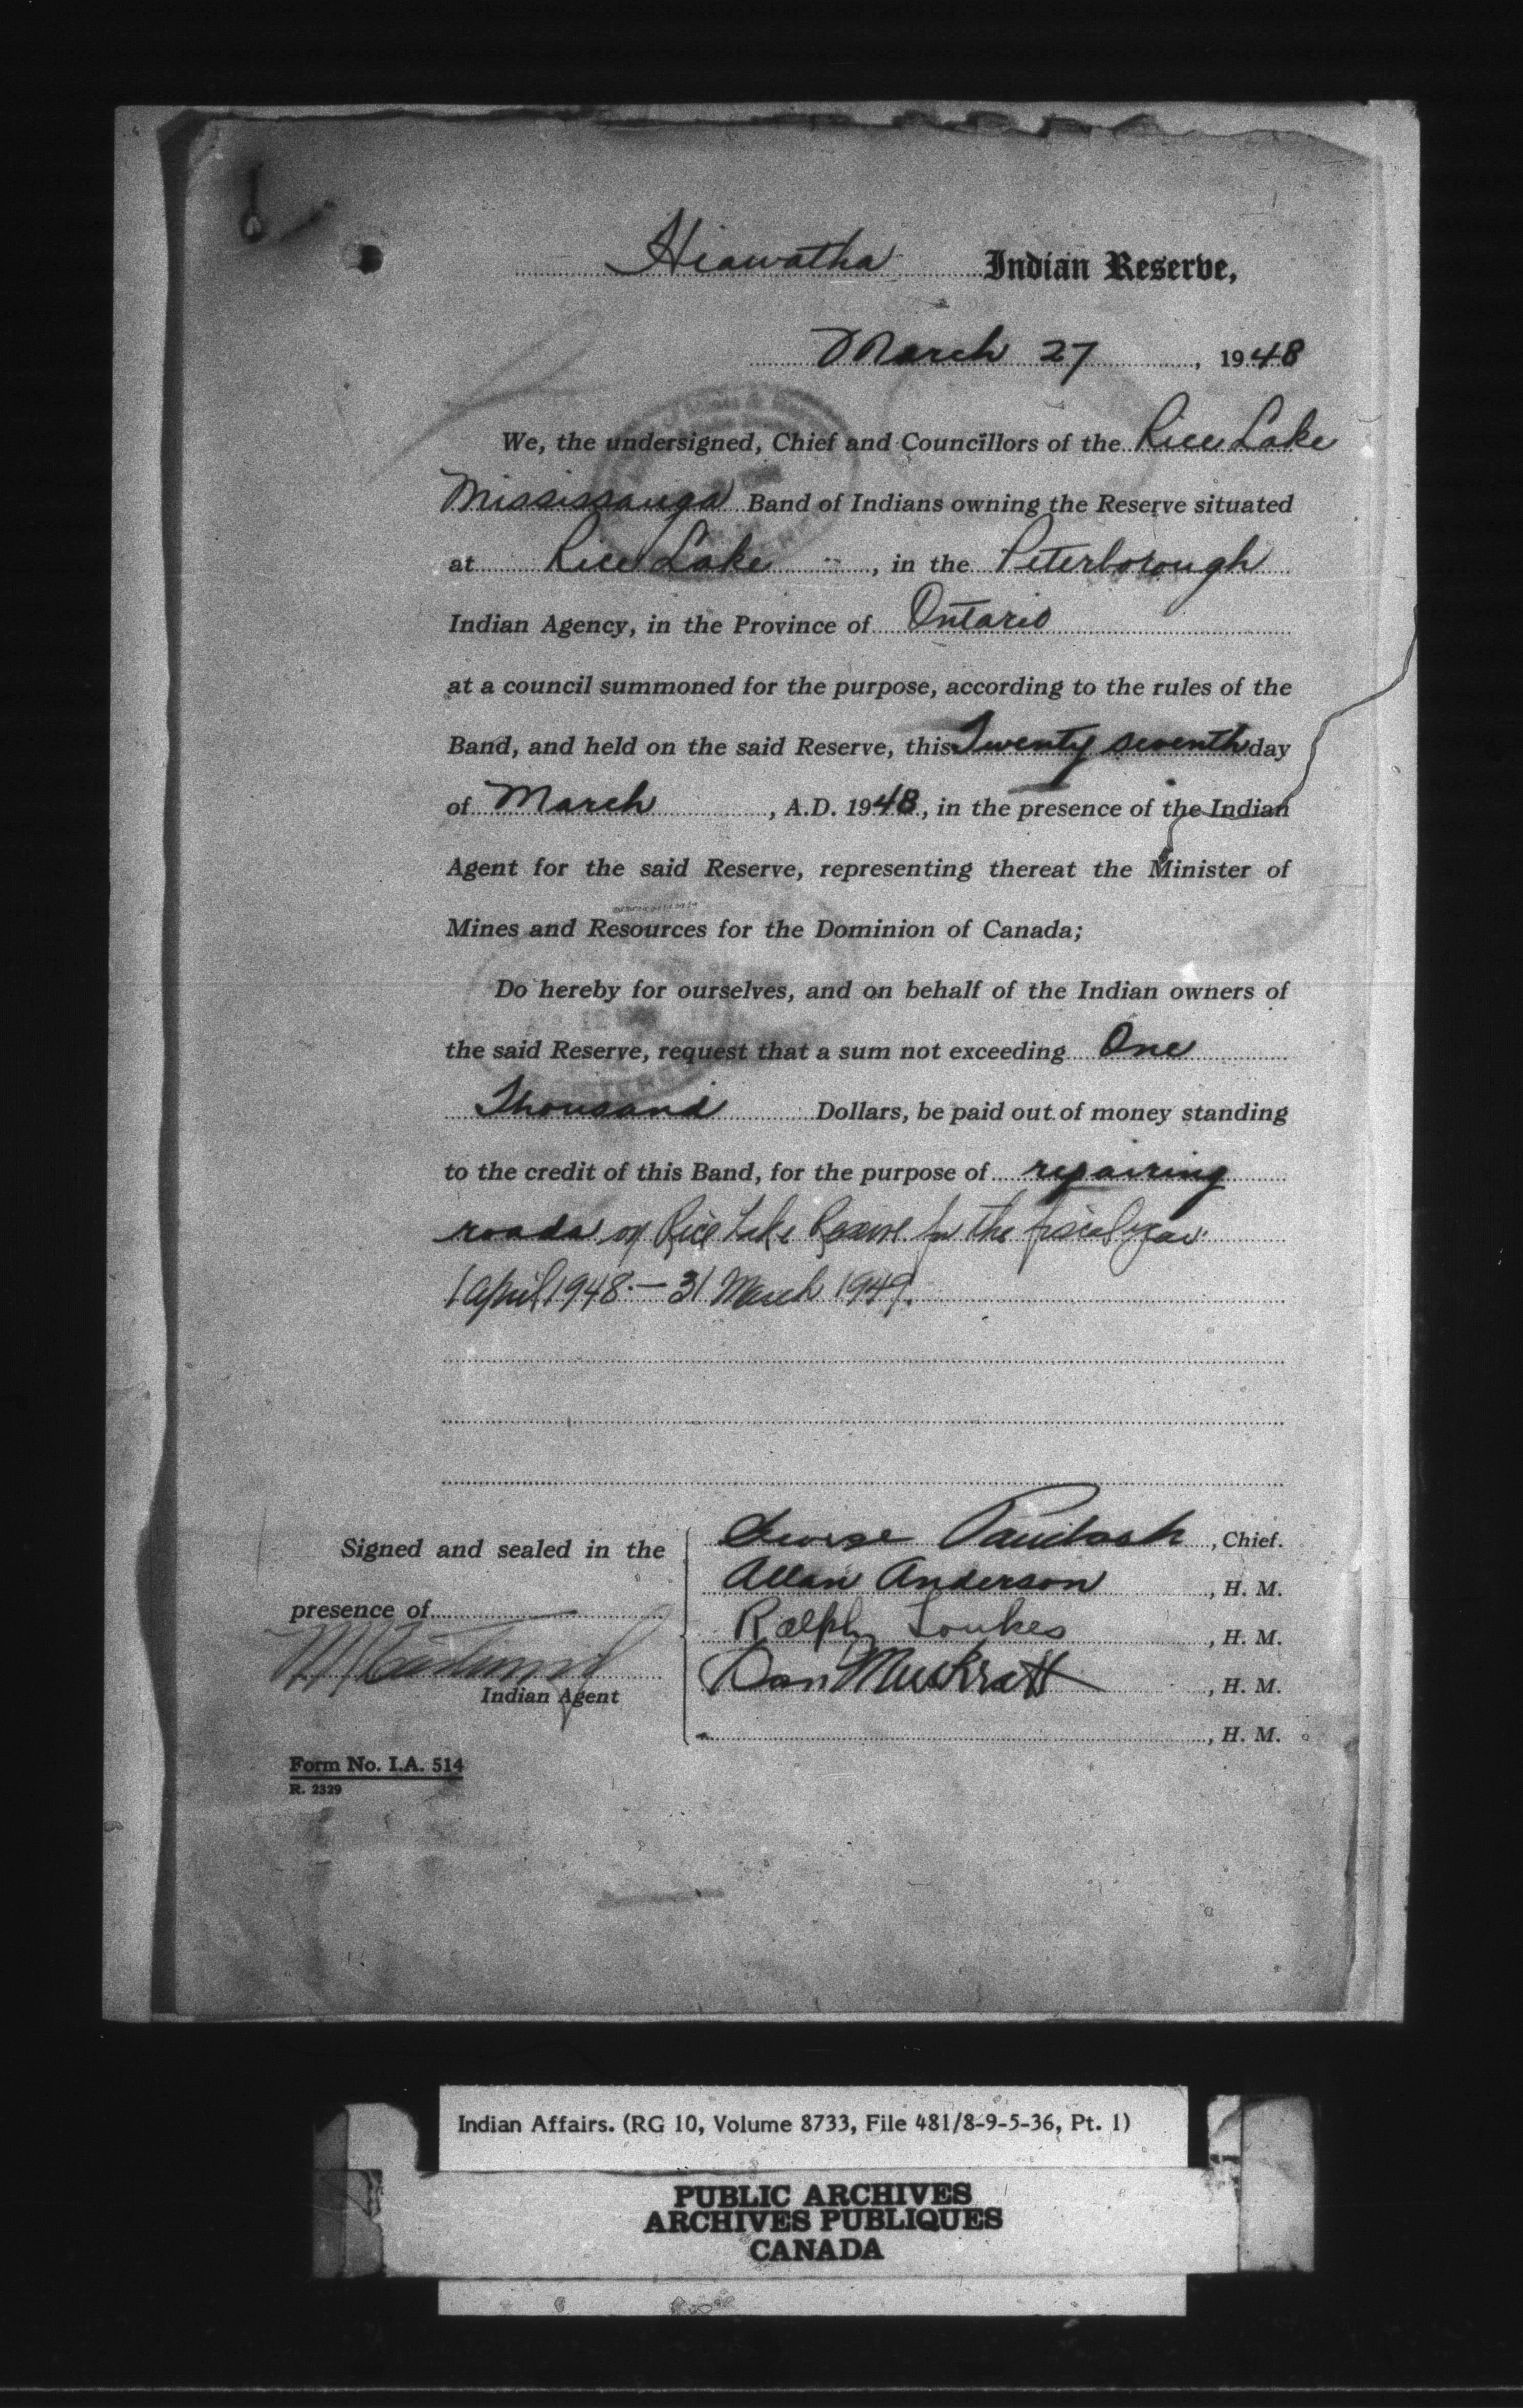 Hiawatha Indian Reserve,
March 27, 1948
We, the undersigned, Chief and Councillors of the Rice Lake
Mississauga Band of Indians owning the Reserve situated
at Rice Lake, in the Peterborough
Indian Agency, in the Province of Ontario
at a council summoned for the purpose, according to the rules of the
Band, and held on the said Reserve, this Twenty seventh day
of March, A.D. 1948, in the presence of the Indian
Agent for the said Reserve, representing thereat the Minister of
Mines and Resources for the Dominion of Canada;
Do hereby for ourselves, and on behalf of the Indian owners of
the said Reserve, request that a sum not exceeding One
Thousand Dollars, be paid out of money standing
to the credit of this Band, for the purpose of repairing
roads on Rice Lake Reserve for the fiscal year
1 April 1948 - 31 March 1949.
Signed and sealed in the
presence of
Indian Agent
George Paudash, Chief.
Allan Anderson, H. M.
Ralph Loukes, H. M.
Dan Muskratt, H. M.
, H. M.
Form No. I.A. 514
R. 2329
Indian Affairs. (RG 10, Volume 8733, File 481/8-9-5-36, Pt. 1)
PUBLIC ARCHIVES
ARCHIVES PUBLIQUES
CANADA